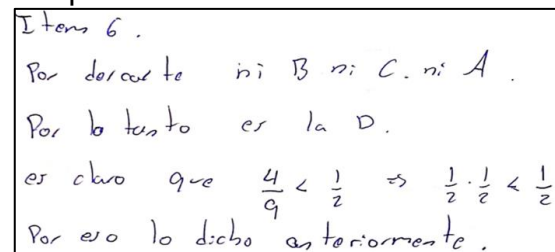 Item 6.
Por descarte ni B ni C. ni A.
Por lo tanto es la D.
es claro que 4/9 < 1/2 => 1/2 · 1/2 < 1/2
Por eso lo dicho anteriormente.